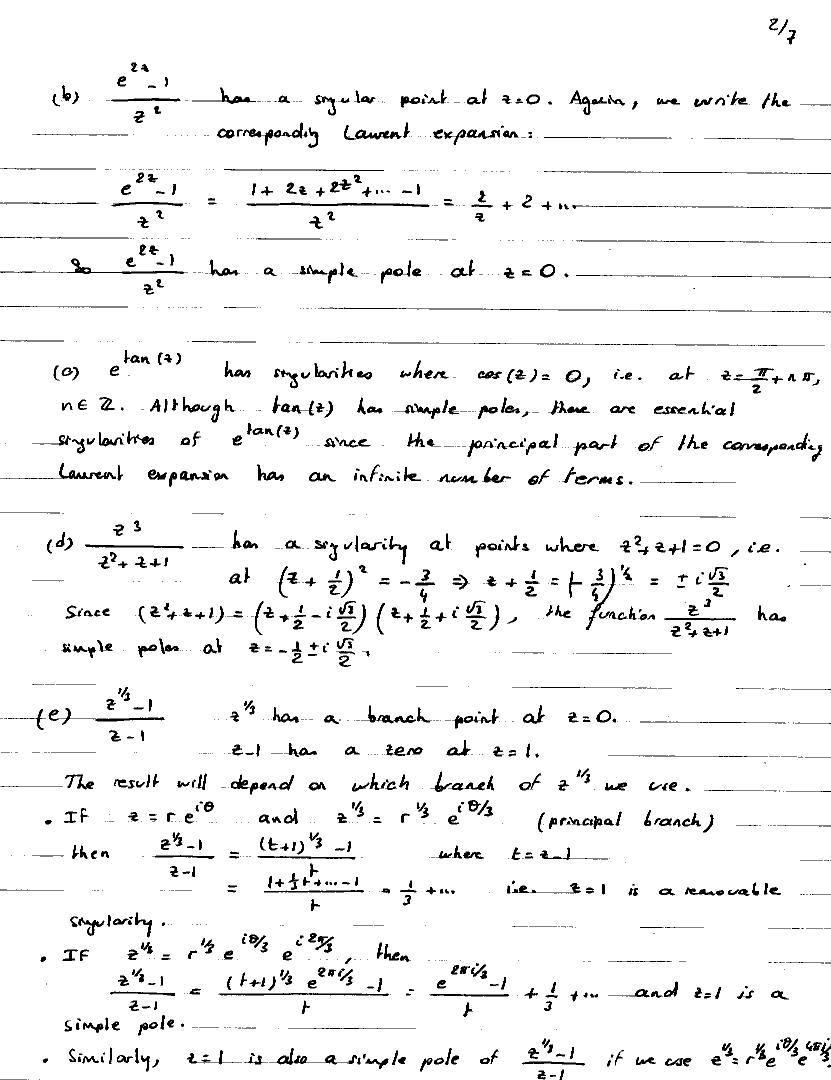 2/7
(b) (e^{2z} - 1)/z^2 has a singular point at z=0. Again, we write the
corresponding Laurent expansion:
(e^{2z} - 1)/z^2 = (1 + 2z + 2z^2 + ... - 1)/z^2 = 2/z + 2 + ...
So (e^{2z} - 1)/z^2 has a simple pole at z = 0.
(c) e^{tan(z)} has singularities where cos(z) = 0, i.e. at z = π/2 + nπ,
n ∈ Z. Although tan(z) has simple poles, these are essential
singularities of e^{tan(z)} since the principal part of the corresponding
Laurent expansion has an infinite number of terms.
(d) z^3/(z^2 + z + 1) has a singularity at points where z^2 + z + 1 = 0, i.e.
at (z + 1/2)^2 = -3/4 ⇒ z + 1/2 = (-3/4)^{1/2} = ± i √3/2
Since (z^2 + z + 1) = (z + 1/2 - i √3/2)(z + 1/2 + i √3/2), the function z^3/(z^2 + z + 1) has
simple poles at z = -1/2 ± i √3/2.
(e) (z^{1/3} - 1)/(z - 1) z^{1/3} has a branch point at z = 0.
z-1 has a zero at z = 1.
The result will depend on which branch of z^{1/3} we use.
• If z = r e^{iθ} and z^{1/3} = r^{1/3} e^{iθ/3} (principal branch)
then (z^{1/3} - 1)/(z - 1) = ((t+1)^{1/3} - 1)/t where t = z-1
= (1 + 1/3 t + ... - 1)/t = 1/3 + ... i.e. z=1 is a removable
singularity.
• If z^{1/3} = r^{1/3} e^{iθ/3} e^{i2π/3}, then
(z^{1/3} - 1)/(z - 1) = ((t+1)^{1/3} e^{2πi/3} - 1)/t = (e^{2πi/3} - 1)/t + 1/3 + ... and z=1 is a
simple pole.
• Similarly, z=1 is also a simple pole of (z^{1/3} - 1)/(z - 1) if we use z^{1/3} = r^{1/3} e^{iθ/3} e^{4πi/3}.